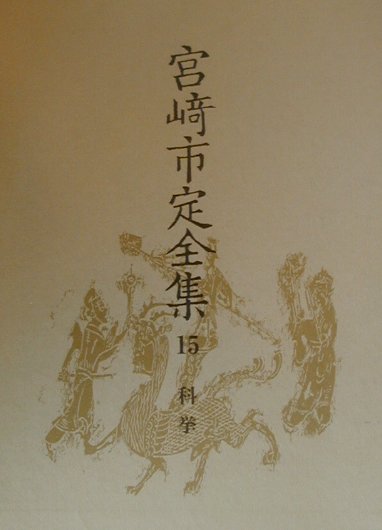 宮﨑市定全集
15
科挙